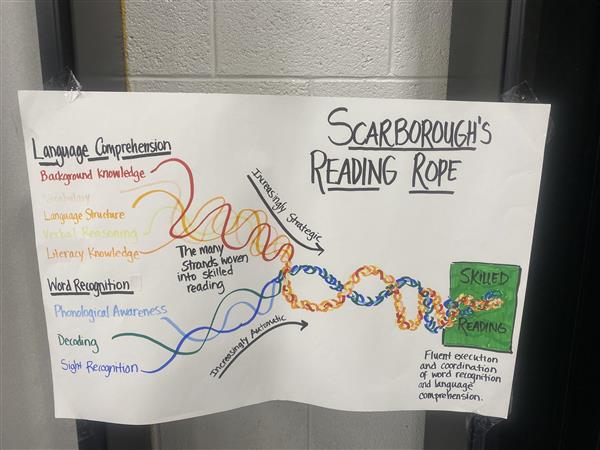 SCARBOROUGH'S
READING ROPE
Language Comprehension
Background Knowledge
Vocabulary
Language Structure
Verbal Reasoning
Literacy Knowledge
Word Recognition
Phonological Awareness
Decoding
Sight Recognition
The many
strands woven
into skilled
reading
Increasingly Strategic
Increasingly Automatic
SKILLED
READING
Fluent execution
and coordination
of word recognition
and language
comprehension.